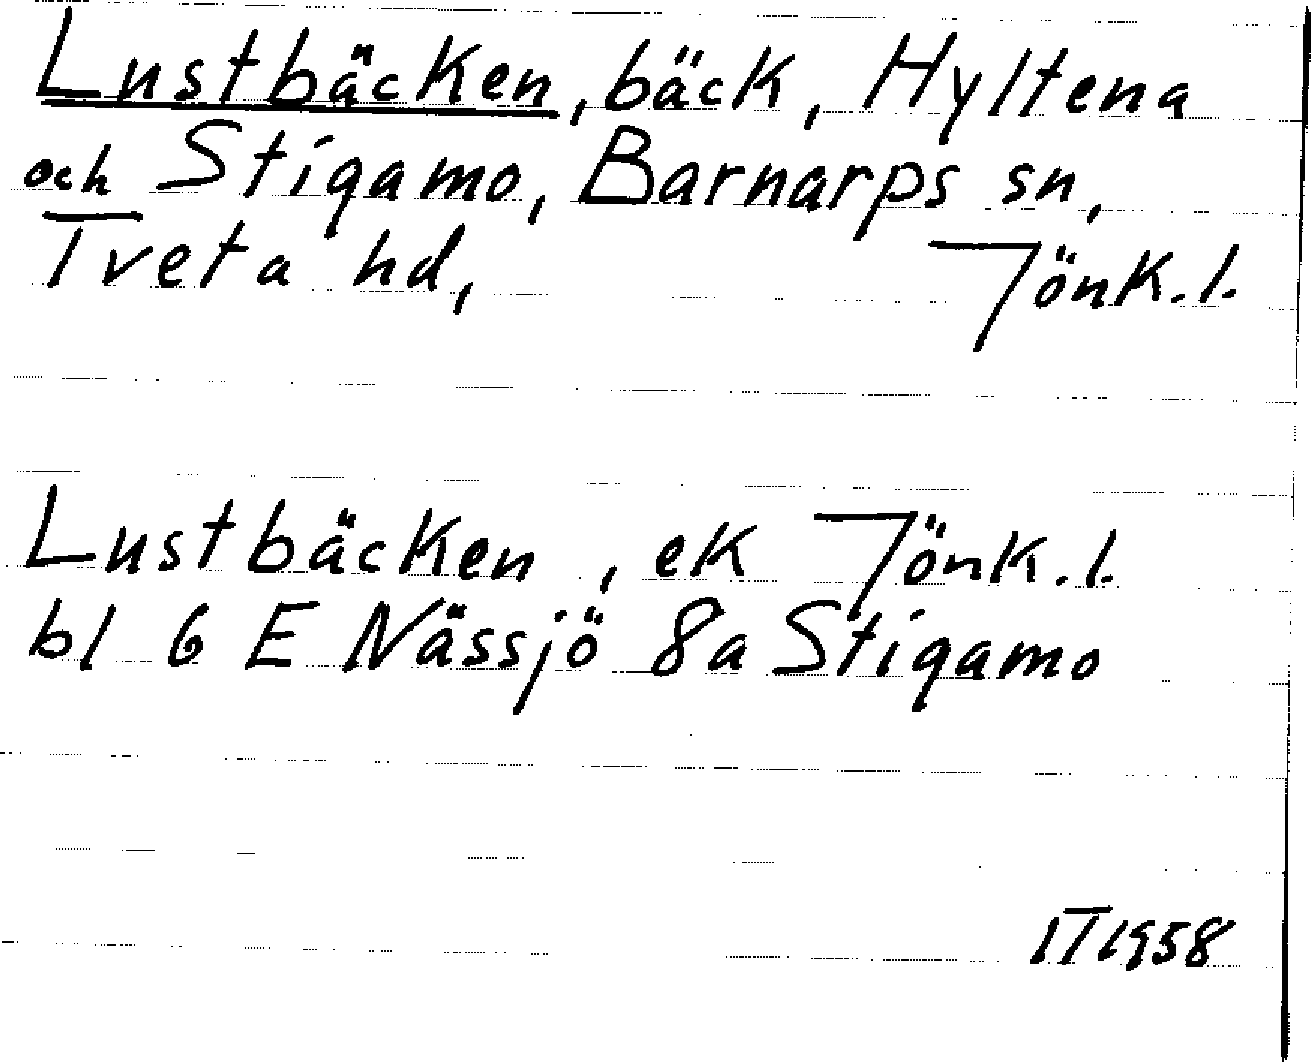 Lustbäcken, bäck, Hyltena
och Stigamo, Barnarps sn,
Tveta hd, Jönk.l.
Lustbäcken, ek Jönk.l.
bl 6 E Nässjö 8a Stigamo
IT 1958